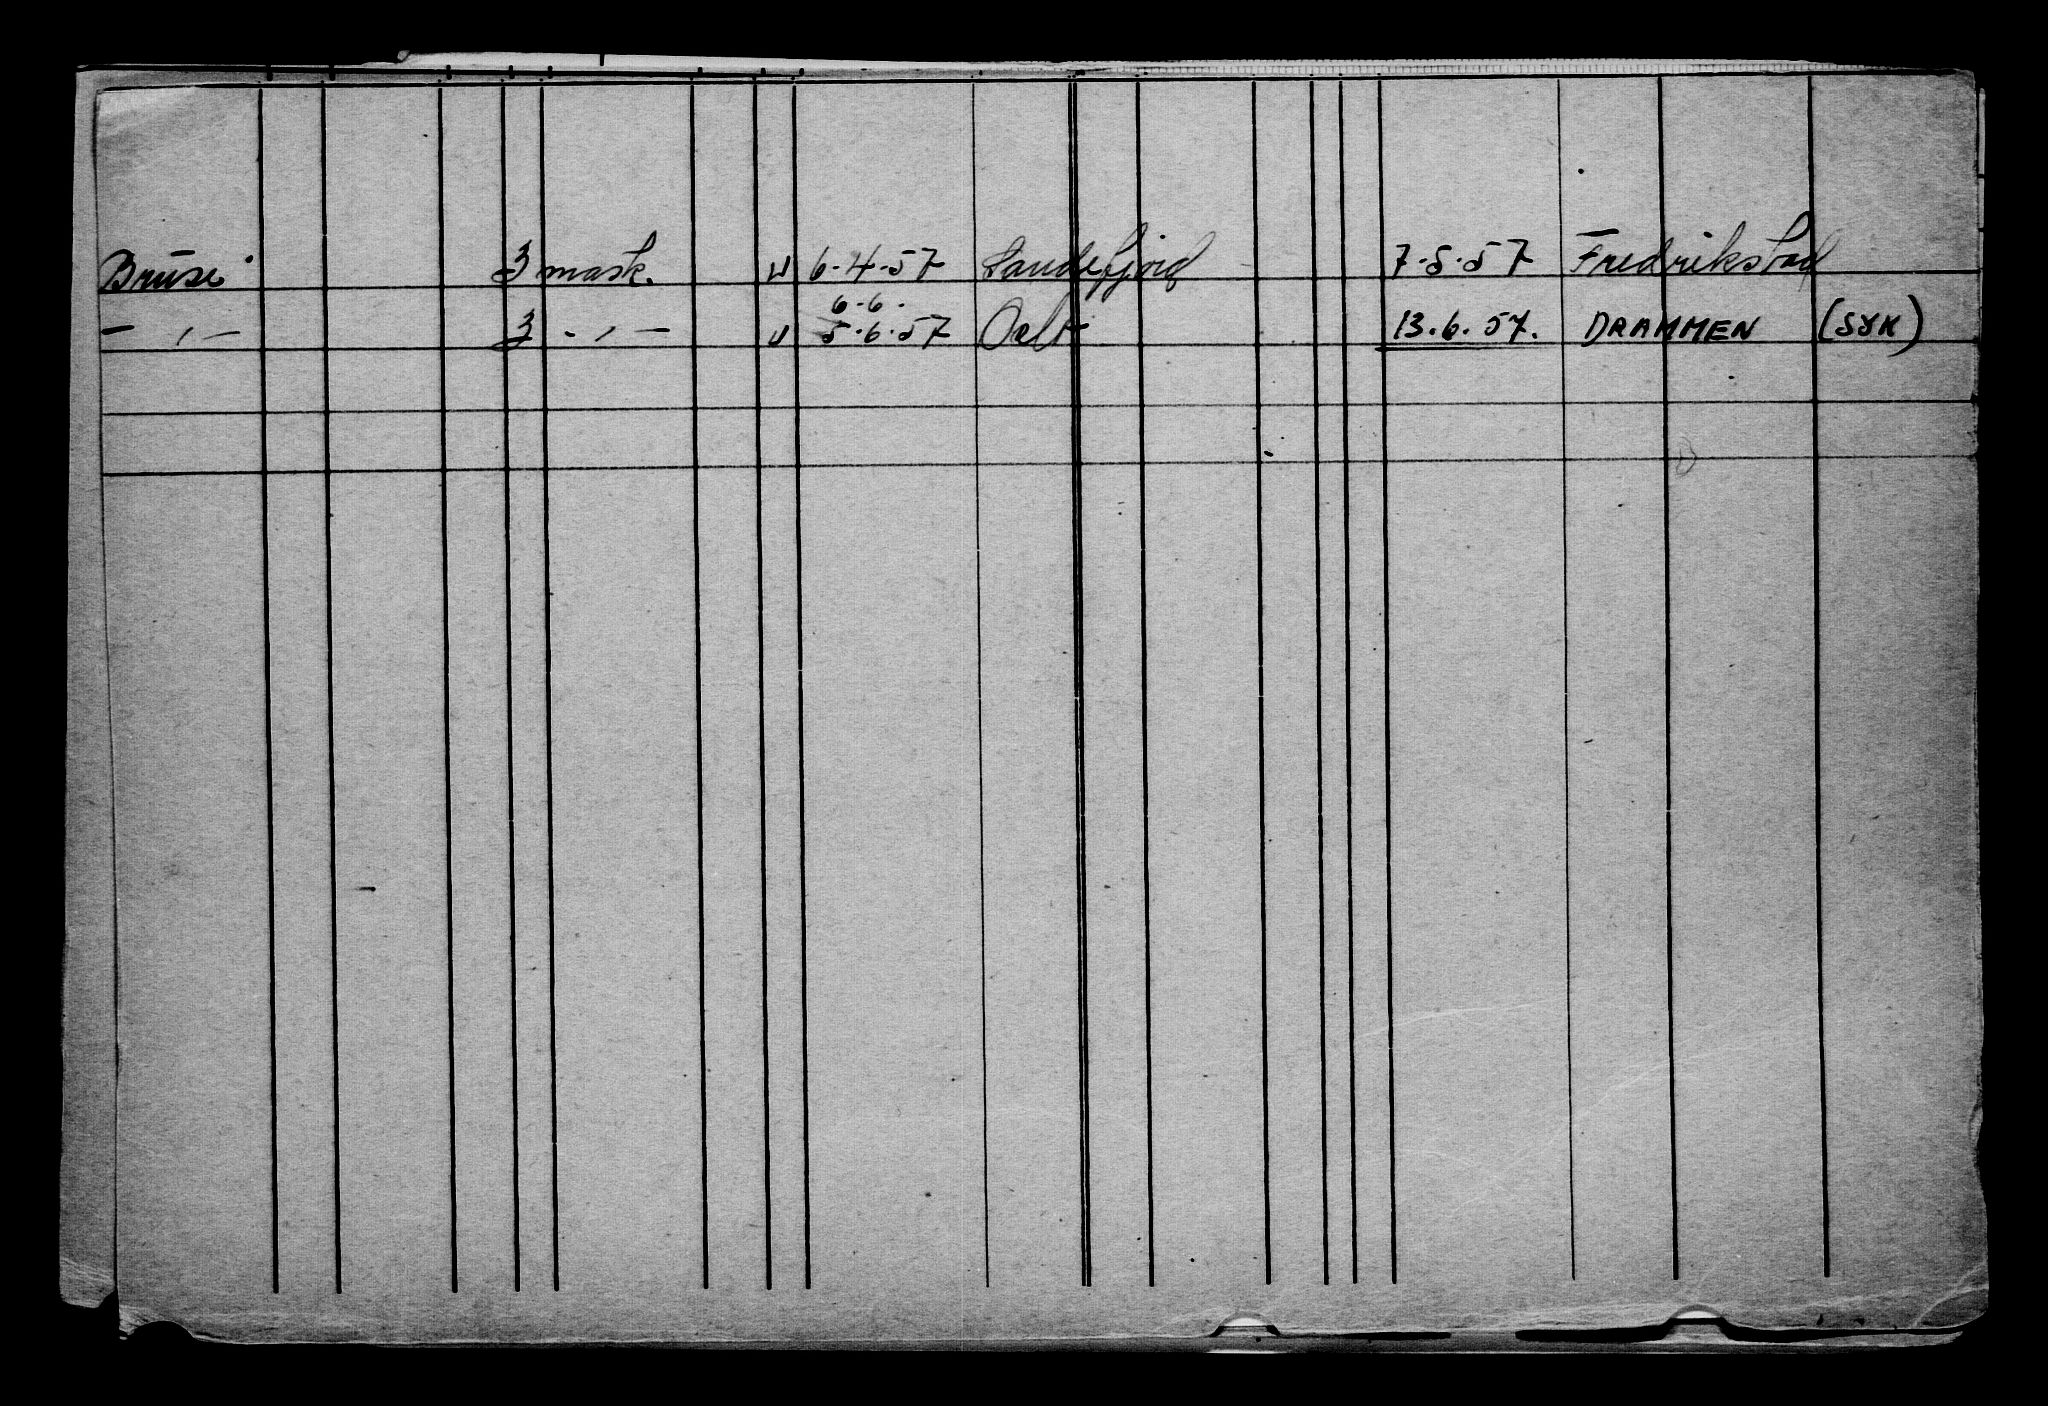 Bruse 3 mask. u 6.4.57 Sandefjord 7.5.57 Fredrikstad
6.6.
— , — 3 - , — u 5.6.57 13.6.57. DRAMMEN (SYK)